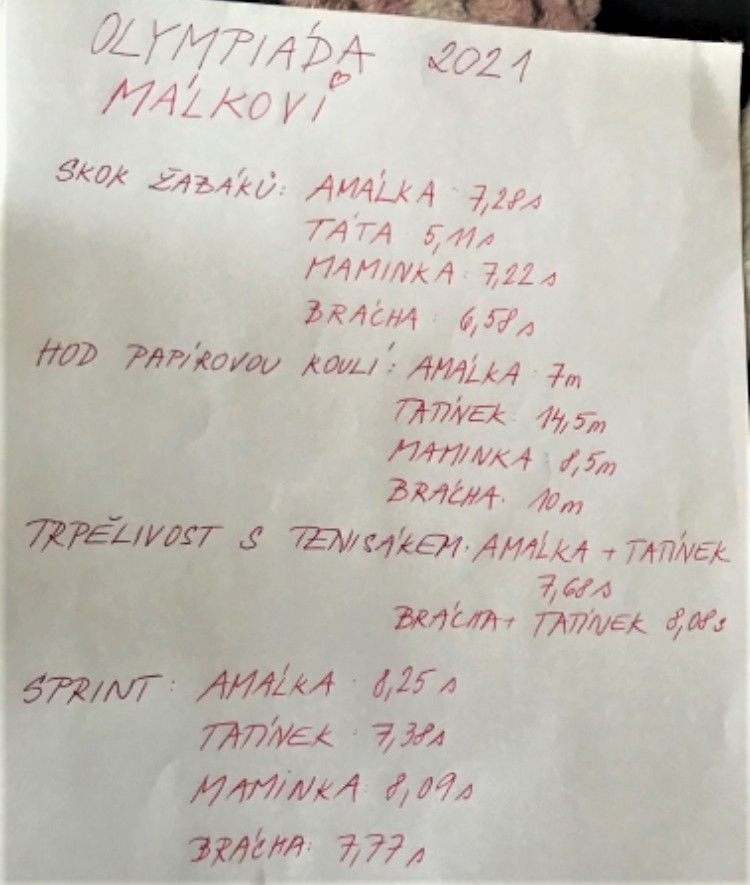 OLYMPIÁDA 2021
MÁLKOVI
SKOK ŽABÁKŮ: AMÁLKA: 7,28s
TÁTA 5,11s
MAMINKA: 7,22s
BRÁCHA: 6,58s
HOD PAPÍROVOU KOULÍ: AMÁLKA: 7m
TATÍNEK: 14,5m
MAMINKA 8,5m
BRÁCHA: 10m
TRPĚLIVOST S TENISÁKEM: AMÁLKA + TATÍNEK
7,68s
BRÁCHA+ TATÍNEK 8,08s
SPRINT: AMÁLKA: 8,25s
TATÍNEK: 7,38s
MAMINKA: 8,09s
BRÁCHA: 7,77s